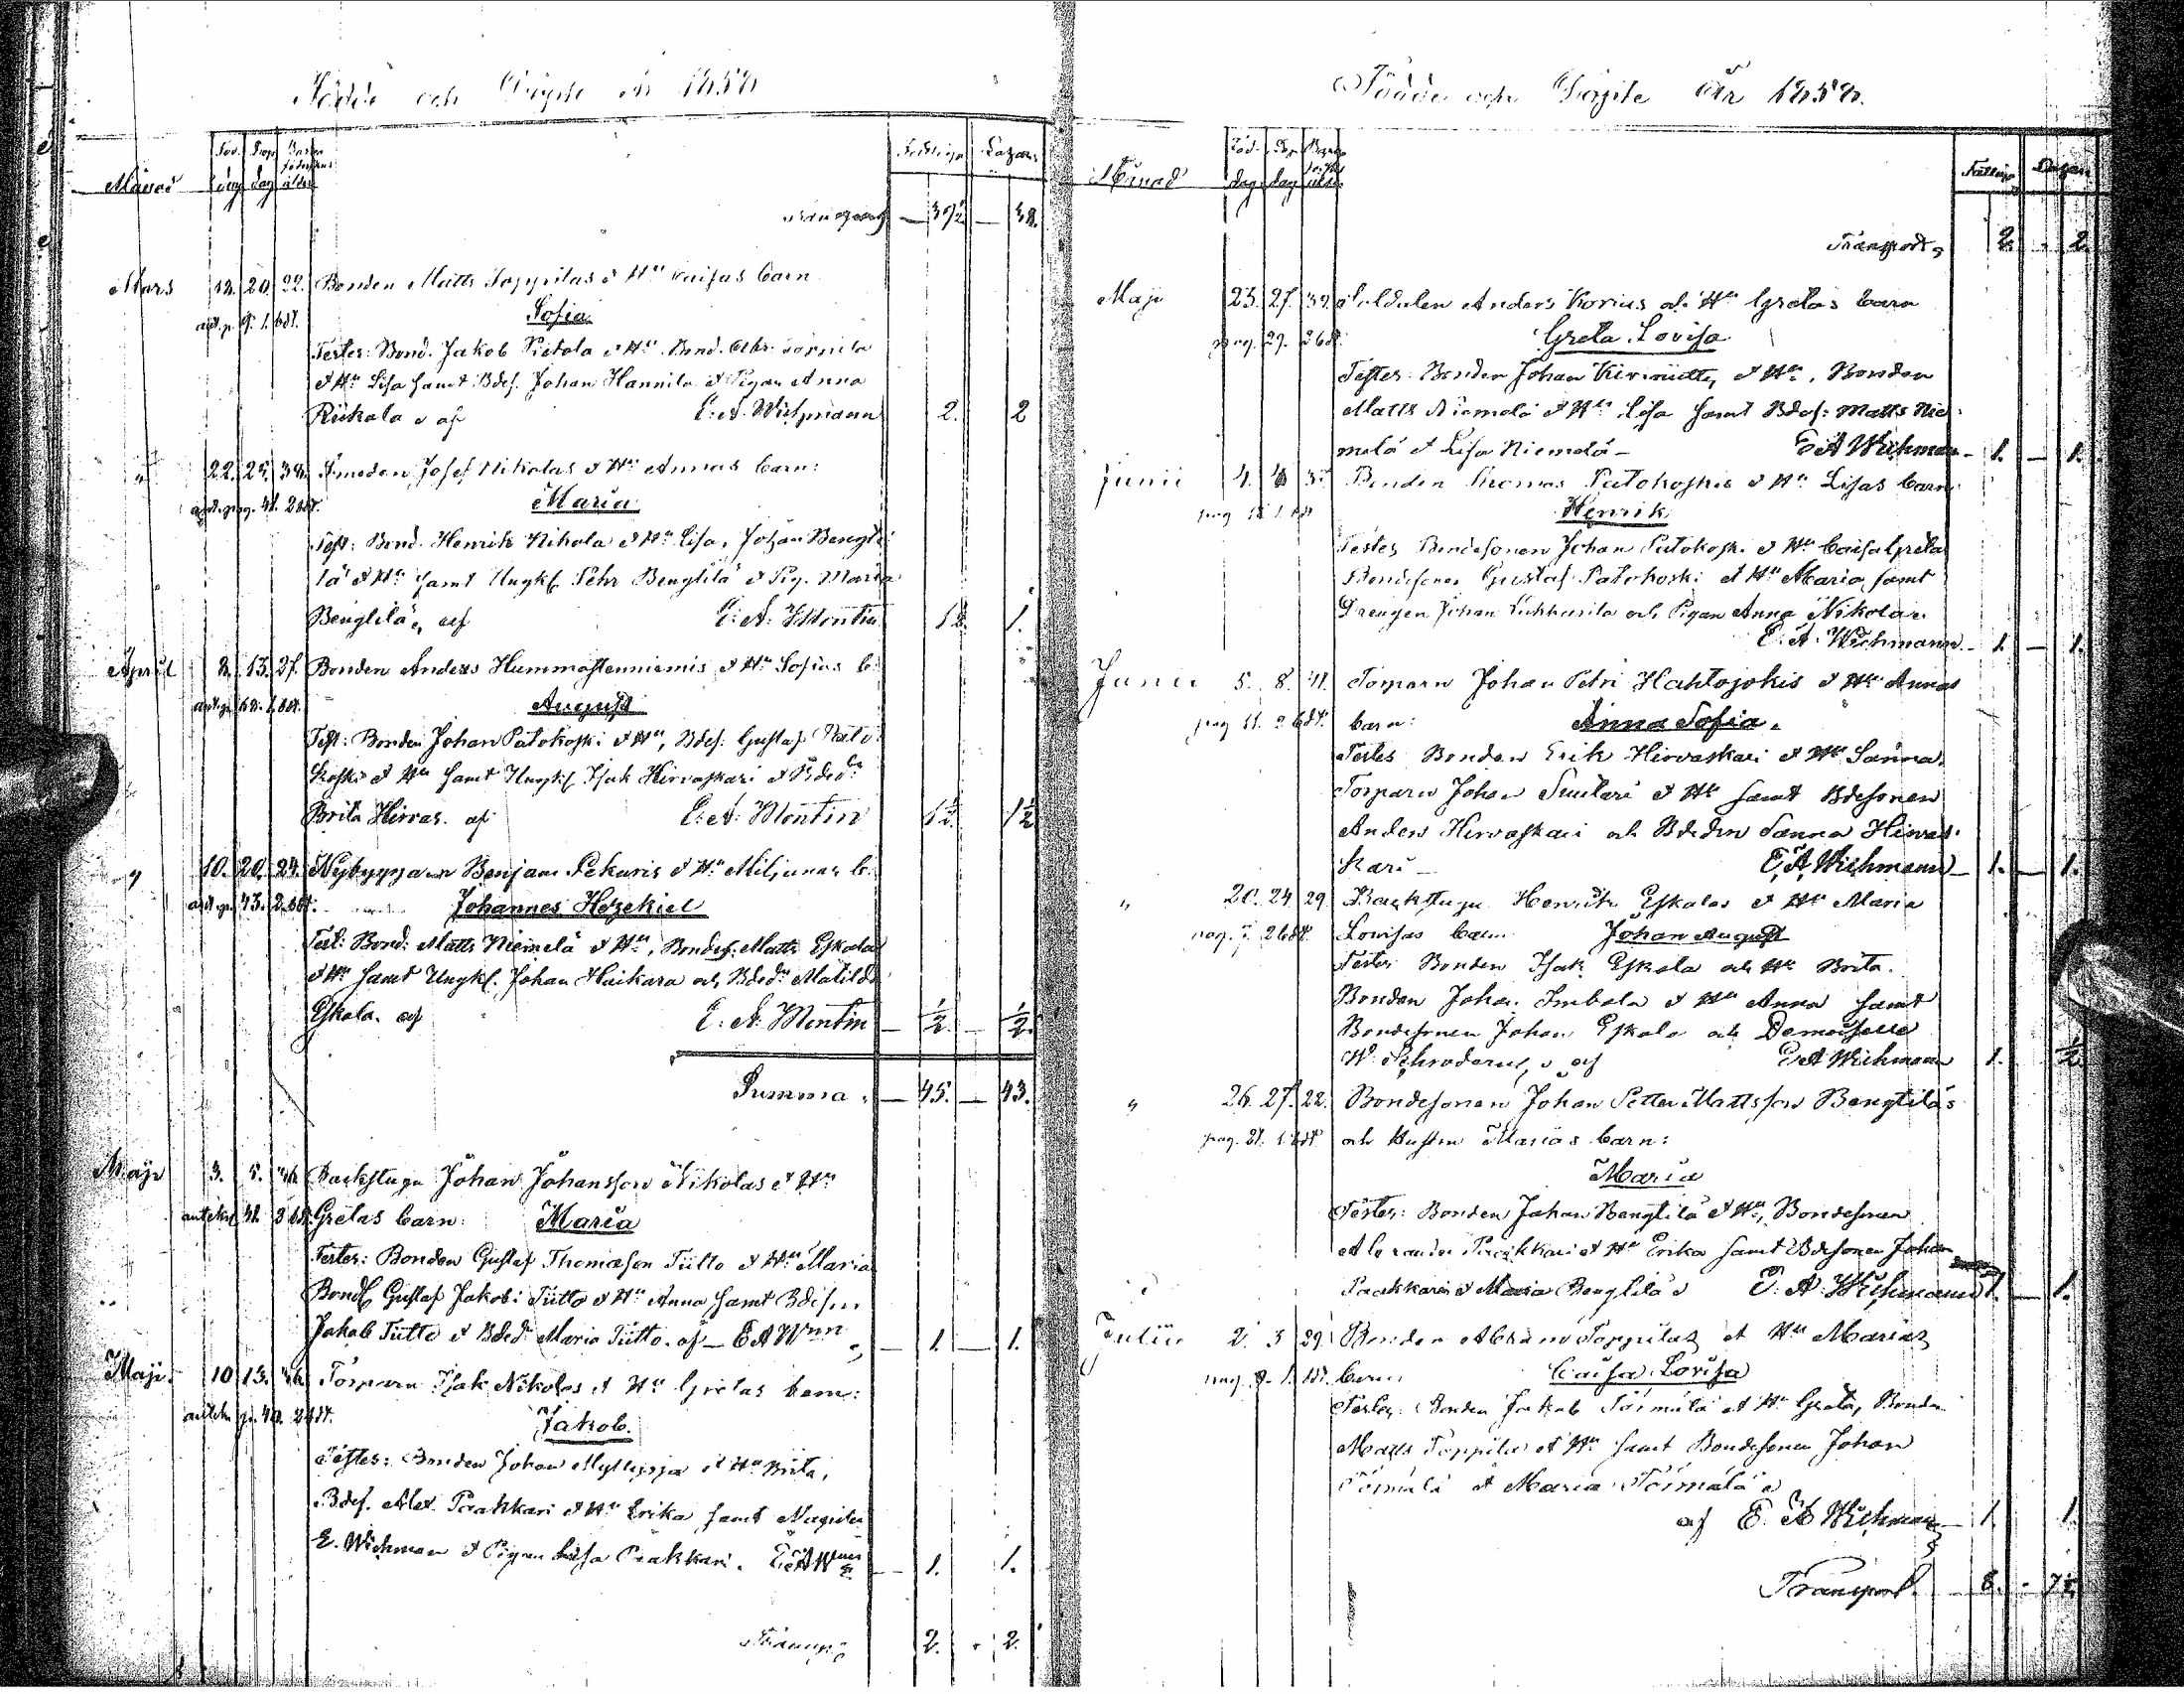 Födde och Döpte år 1858
Månad Föd. dag Döp. dag ålder Fattiga Lazar.
Transport — 37½ — 38.
Mars 12. 20. 22. Bonden Matts Toppilas & Hu Kaisas barn
Sofia
Testes: Bond. Jakob Pietola & Hu. Bond. Abr.
& Hu Lisa samt Bdes. Johan Hannila & Pigan Anna
Riikala af E: A. Wichmann 2. 2
" 22. 25. 38. Smeden Josef Nikolas & Hu Annas barn:
ant. pag. 41. 2 dt. Maria
Test: Bond. Henrik Nikola & Hu Lisa, Johan Bengti
lä & Hu samt Ungk. Pehr Bengtilä & Pig. Maria
Bengtilä, af E: A: Montin 1½ 1.
April 8. 13. 27. Bonden Anders Hummastenniemis & Hu Sofias b:
August
Test: Bonden Johan Patokoski & Hu, Bdes. Gustaf Pato
koski & Hu samt Ungk. Isak Hirvaskari & Bded:r
Brita Hirvas. af E: A: Montin 1½ 1½
" 10. 20. 24. Nybyggaren Benjam Pekuris & Hu b:
ant. pg. 43. 2 dt. Johannes Hezekiel
Test: Bond: Matts Niemelä & Hu, Bondes. Matts Eskola
& Hu samt Ungk. Johan Haikara och Bded:r Matilda
Eskola. af E: A: Montin — ½ — ½.
Summa, — 45. — 43.
Maji 3. 5. Backstugu Johan Johansson Nikolas & Hu
Gretas barn: Maria
Testes: Bonden Gustaf Thomæson Tütto & Hu Maria
Bond Gustaf Jakobi Tütto & Hu Anna samt Bdeson
Jakob Tütto & Bded:r Maria Tütto. af — E A Wnn — 1. — 1.
Maji. 10 13. Torparn Isak Nikolas & Hu Gretas barn:
Jakob.
Testes: Bonden Johan Myllyoja & Hu Brita,
Bdes. Alex. Paakkari & Hu Erika samt Magister
E. Wichman & Pigan Lisa Paakkari. 1. 1.
Transp: 2. 2.
Födde och Döpte År 1858.
Månad Föd. dag Döp. dag ålder Fattiga Lazar.
Transport, 2. - 2.
Maji 23. 27. 32. Soldaten Anders Korius och Hu Gretas barn
pag. 29. 2 dt. Greta Lovisa
Testes: Bonden Johan & Hu, Bonden
Matts Niemelä & Hu Lisa samt Bdes: Matts Nie:
melä & Lisa Niemelä — E A Wichman — 1. — 1.
Junii 4. 37 Bonden Thomas Patokoskis & Hu Lisas barn
Henrik
Testes Bondesonen Johan Patokoski & Hu Caisa Greta
Bondesonen Gustaf Patokoski & Hu Maria, samt
Drengen Johan och Pigan Anna Nikola
E. A. Wichmann — 1. — 1.
Junii 5. 8. 41. Torparn Johan Petri Hahtojokis & Hu Annas
barn: Anna Sofia.
Testes Bonden Erik Hirvaskari & Hu Sanna,
Torparn Johan Suutari & Hu samt Bdesonen
Anders Hirvaskari och Bdedtn Sanna Hirvas:
kari — E. A. Wichmann — 1. — 1.
" 20. 24. 29. Backstugu Henrik Eskolas & Hu Maria
Lovisas barn Johan August
Testes Bonden Isak Eskola och Hu Brita.
Bonden Johan Imbola & Hu Anna samt
Bondesonen Johan Eskola och Demoiselle
W. Schroderus, af E. A. Wichmann 1. ½
" 26. 27. 22. Bondesonen Johan Petter Mattsson Bengtiläs
och Hustru Marias barn:
Maria
Testes: Bonden Johan Bengtilä & Hu, Bondesonen
Alexander Paakkari & Hu Erika samt Bdesonen Johan
Paakkari & Maria Bengtilä E. A. Wichmann 1. — 1.
Julii 2. 3 29. Bonden Abram Toppilas & Hu Marias
barn Caisa Lovisa
Testes: Bonden Jakob Törmälä & Hu Greta, Bonden
Matts Toppila & Hu samt Bondesonen Johan
Törmälä & Maria Törmälä
af E. A Wichman 1. 1.
Transport. — 8. - 7½